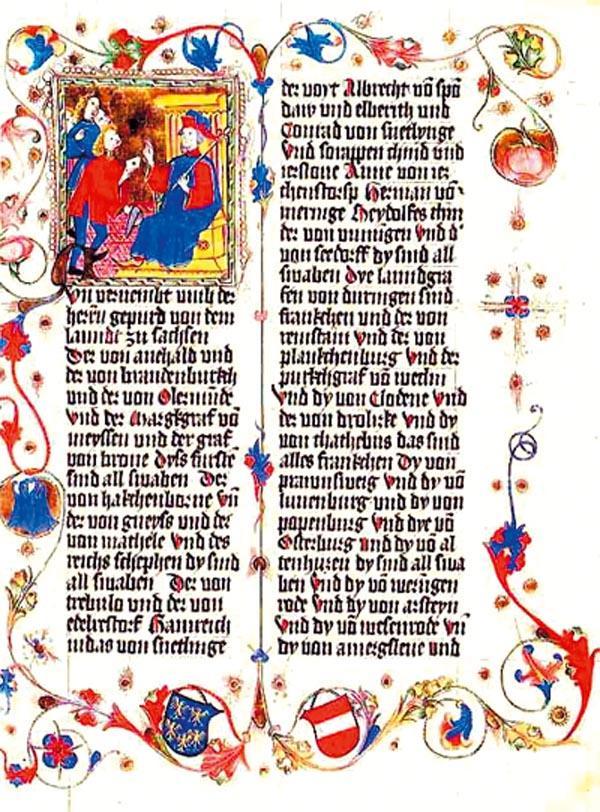 Vn vernembt umb der
herrn gepurd von dem
lanndt zu sachsen
Der von anehald vnd
der von brandenburckh
vnd der von Olermünde
Vnd der Margkgraf võ
meyssen vnd der graf
von brone Dyss fürstē
sind all swaben Der
von hakchenborne vñ
der von gneyss vnd der
von mathele Vnd des
reichs schephen dy sind
all swaben Der von
trebulo vnd der von
edelrestorf Hainreich
iudas von snetlinge
der voyt Albrecht võ spō
daw vnd elberith vnd
Conrad von snetlynge
Vnd scrappen chind vnd
Anne von
Herman võ
meringe Heydolfes chin
der von winnigen Vnd d'
von seedorff dy sind all
swaben Dye lanndgra
fen von duringen sind
frankchen vnd der von
reinstain Vnd der von
plankchenburg Vnd der
purkchgraf võ wettin
Vnd dy von Clodene Vnd
der von drolizke Vnd dy
von chathebus das sind
alles frankchen Dy von
prawnsweig Vnd dy võ
lunenburg vnd dy von
popenburg Vnd dye võ
Osterburg Vnd dy võ al
tenhuzen dy sind all swa
ben Vnd dy võ weringen
rode Vnd dy von arsteyn
Vnd dy võ wesenrode Vñ
dy von amergsleue vnd